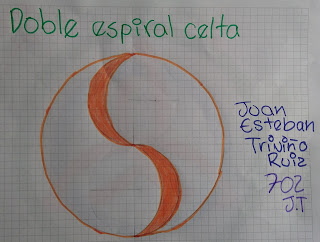 Doble espiral celta
Joan
Esteban
Triviño
Ruiz
702
J.T